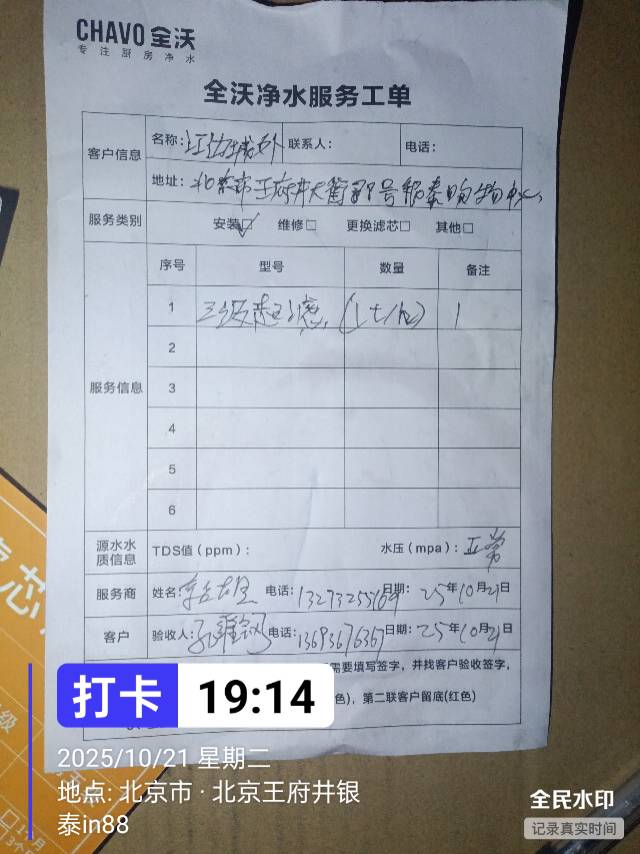 CHAVO 全沃
专注厨房净水
全沃净水服务工单
客户信息
名称: 江边城外 联系人: 电话:
地址: 北京市王府井大街88号银泰购物中心
服务类别 安装☑ 维修□ 更换滤芯□ 其他□
服务信息
序号 型号 数量 备注
1 三级超滤 (1t/h) 1
2
3
4
5
6
源水水质信息 TDS值(ppm): 水压(mpa): 正常
服务商 姓名: 电话: 13273255164 日期: 25年10月21日
客户 验收人: 电话: 13693676367 日期: 25年10月21日
需要填写签字,并找客户验收签字,
色), 第二联客户留底(红色)
打卡 19:14
2025/10/21 星期二
地点: 北京市·北京王府井银
泰in88
全民水印
记录真实时间